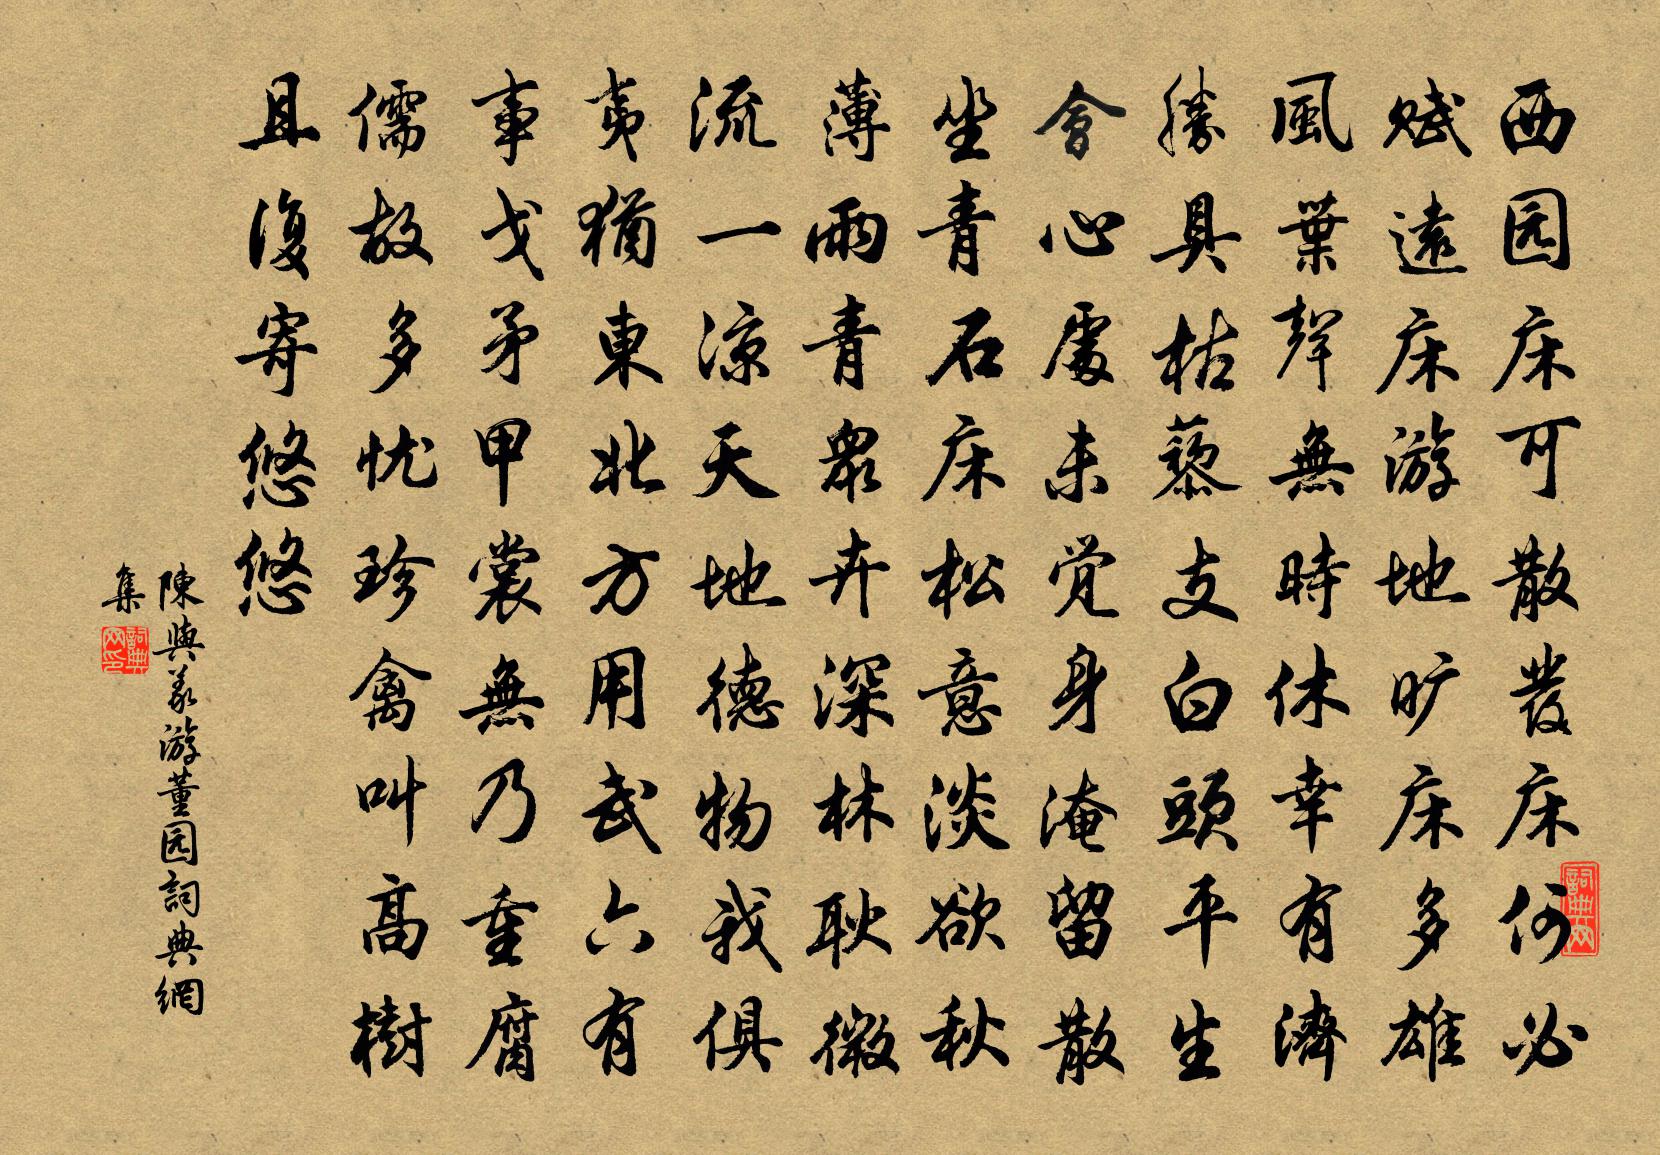 西园床可散發床何必
赋遠床游地旷床多雄
風葉聲無時休幸有濟
勝具枯藜支白頭平生
會心處未觉身淹留散
坐青石床松意淡欲秋
薄雨青眾卉深林耿微
流一凉天地德物我俱
夷猶東北方用武六有
事戈矛甲裳無乃重腐
儒故多忧珍禽叫高樹
且復寄悠悠
陳與義游董园詞典網
集
詞典网
詞典网印